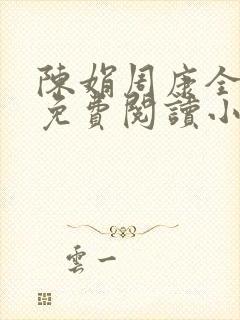 陳娟周康全
免費閱讀小
雲一